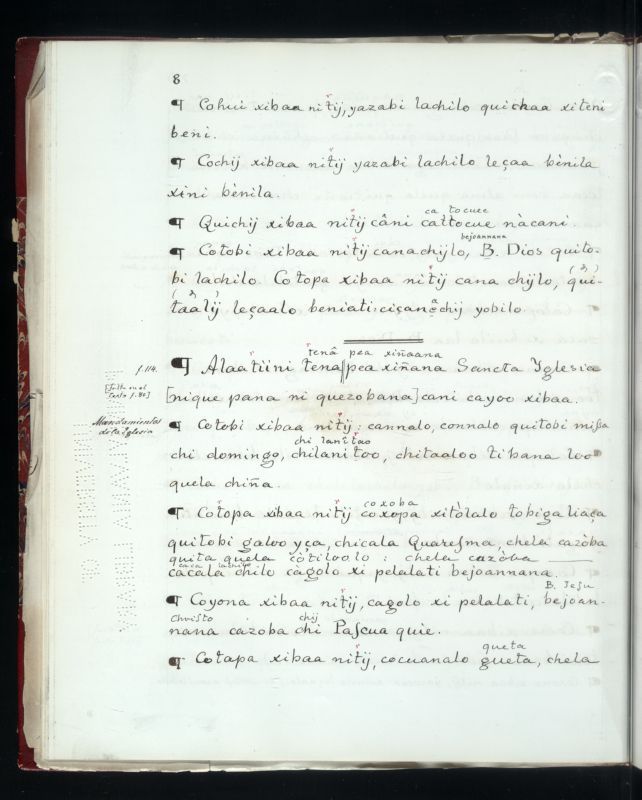 8
¶ Cohui xibaa nitij, yazabi lachilo quichaa xiteni
beni.
¶ Cochij xibaa nitij yazabi lachilo leçaa bènila
xini bènila.
ca tocuee
¶ Quichij xibaa nitij câni cattocue nàcani.
bejoannana
¶ Cotobi xibaa nitij canachijlo, B. Dios quito-
bi lachilo. Cotopa xibaa nitij cana chijlo, qui-
(?) (?)
taalij leçaalo beniati: ciçanachij yobilo
tenâ pea xiñaana
f. 114.
¶ Alaatiini tena‖pea xiñana Sancta Yglesia
[falta en el
texto f. 80]
[nique pana ni quezobana] cani cayoo xibaa.
Mandamientos
de la Yglesia
¶ Cotobi xibaa nitij: cannalo, connalo quitobi miſsa
chi lanitao
chi domingo, chilanitoo, chitaaloo tibana loo
quela chiña.
coxoba
¶ Cotopa xibaa nitij coxopa xitòlalo tobiga liaça
quitobi galoo yça, chicala Quareſma, chela cazòba
quita quela còtiloolo: chela cazòba
caca lachilo
cacala chilo càgolo xi pelalati bejoannana.
B. Jeſu
¶ Coyona xibaa nitij, cagolo xi pelalati, bejoan-
Chriſto chij
nana cazoba chi Paſcua quie.
queta
¶ Cotapa xibaa nitij, cocuanalo gueta, chela